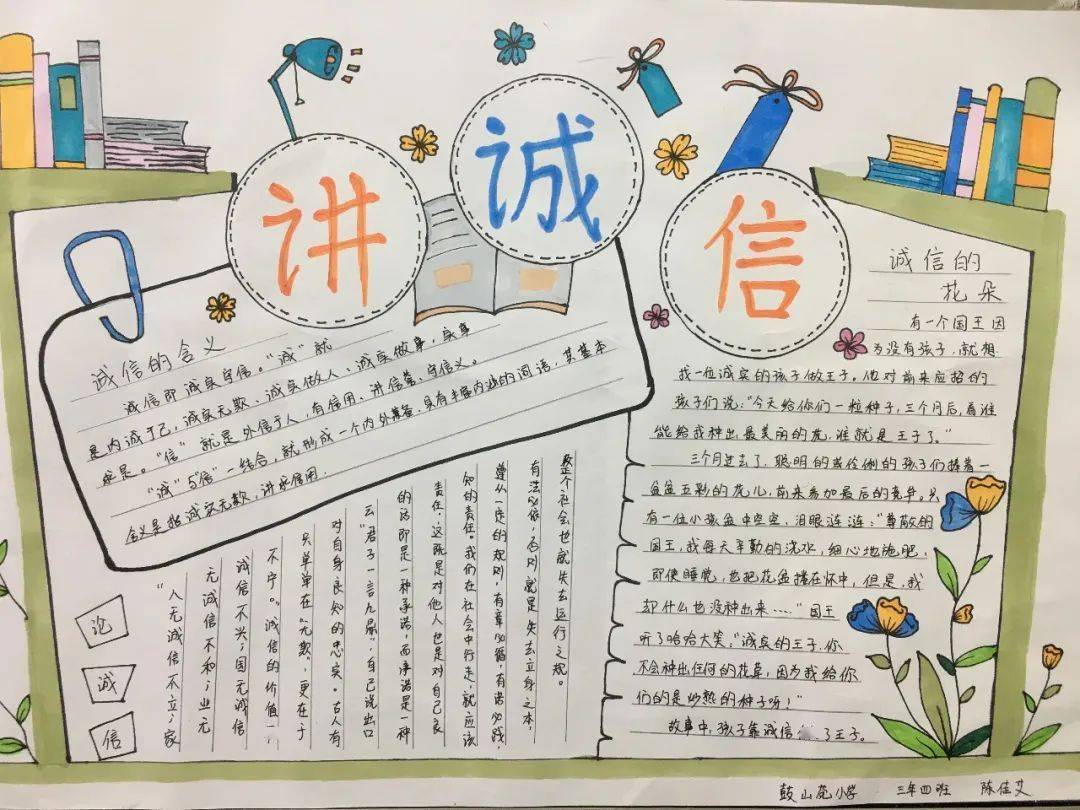 讲诚信
诚信的含义
诚信即诚实守信。“诚”就
是内诚于己,诚实无欺、诚实做人、诚实做事,实事
求是。“信”就是外信于人,有信用、讲信誉、守信义。
“诚”与“信”一结合,就形成一个内外兼备,具有丰富内涵的词语,其基本
含义是指诚实无欺,讲求信用.
论
诚
信
“人无诚信不立;家
无诚信不和;业无
诚信不兴;国无诚信
不宁”。诚信的价值,
单单在“无欺”,更在于
对自身良知的忠实。古人有
云“君子一言九鼎”,自己说出口
的话即是一种承诺,而承诺是一种
责任,这既是对他人也是对自己良
知的责任。我们在社会中行走,就应该
遵从一定的规则,有章必循,有诺必践,
有法必依,否则就是失去立身之本,
整个社会也就失去运行之规。
诚信的
花朵
有一个国王因
为没有孩子,就想
找一位诚实的孩子做王子。他对前来应招的
孩子们说:“今天给你们一粒种子,三个月后,看谁
能给我种出最美丽的花,谁就是王子了。”
三个月过去了,聪明的或伶俐的孩子们捧着一
盆盆五彩的花儿,前来参加最后的竞争。只
有一位小孩盆中空空,泪眼涟涟:“尊敬的
国王,我每天辛勤的浇水,细心地施肥,
即使睡觉,也把花盆搂在怀中,但是,我
却什么也没种出来……”国王
听了哈哈大笑:“诚实的王子,你
不会种出任何的花草,因为我给你
们的是炒熟的种子呀!”
故事中,孩子靠诚信了王子。
鼓山苑小学 三年四班 陈佳艾